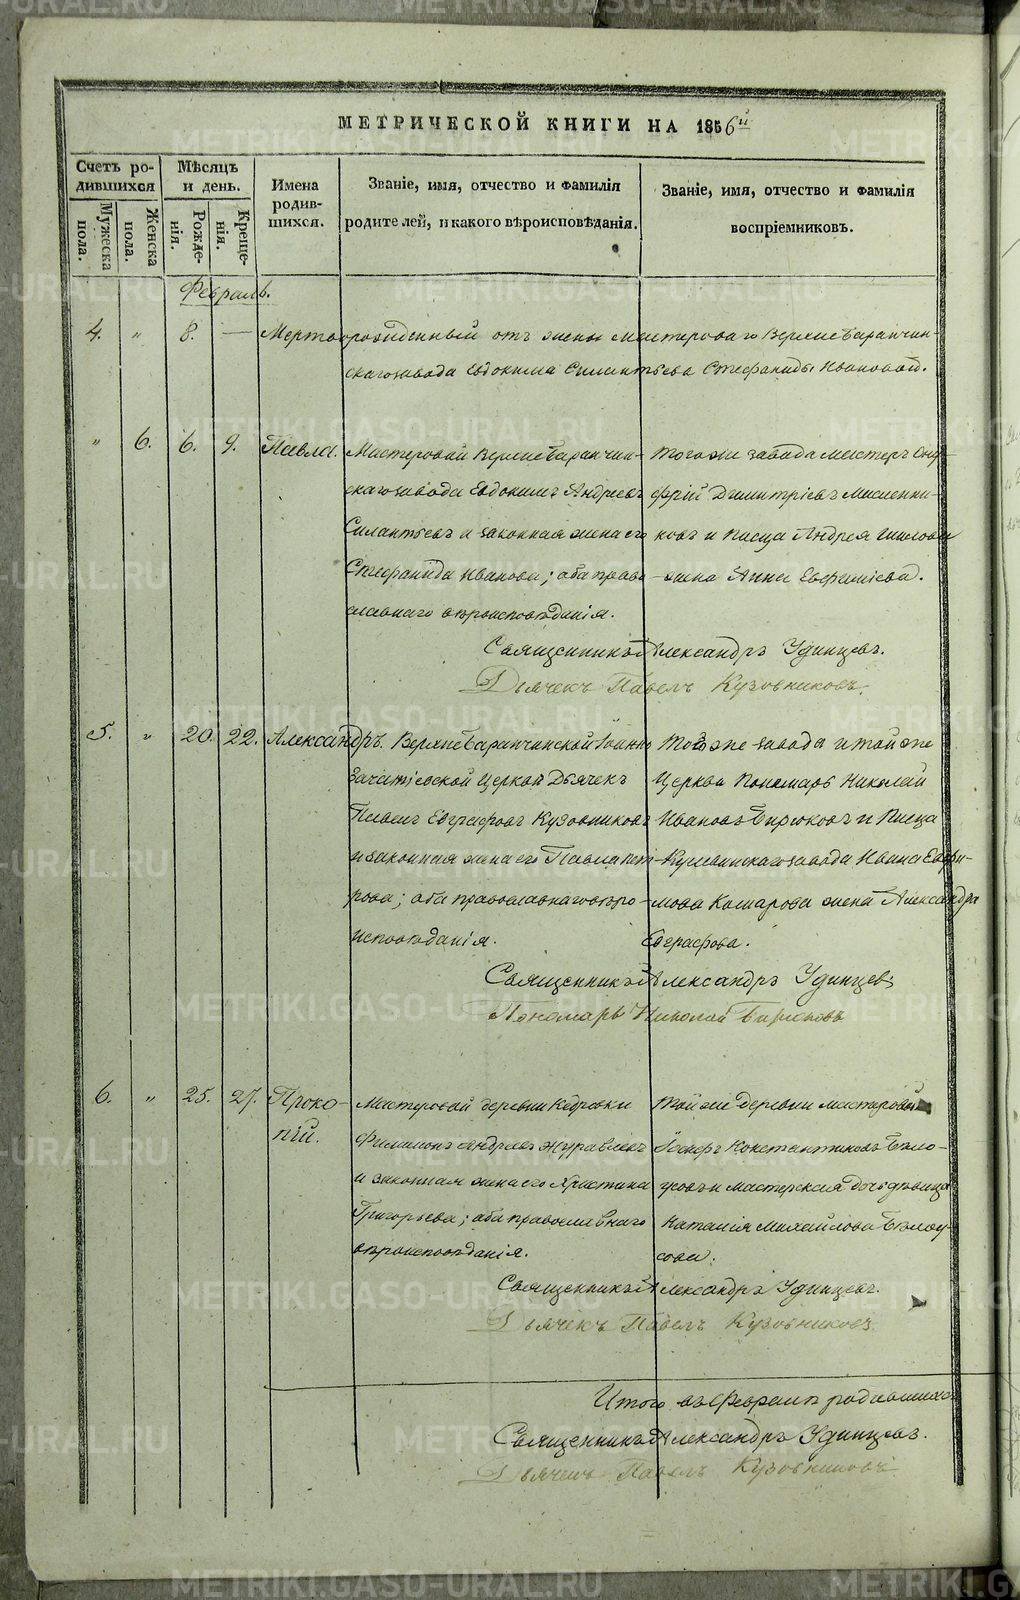 МЕТРИЧЕСКОЙ КНИГИ НА 1856й
Счетъ родившихся
Мѣсяцъ и день.
Имена родившихся.
Званіе, имя, отчество и фамилія родителей, и какого вѣроисповѣданія.
Званіе, имя, отчество и фамилія воспріемниковъ.
Мужеска пола.
Женска пола.
Рожденія.
Крещенія.
Февраль.
4. " 8. — Мертворожденный отъ жены мастероваго Верхнебаранчин-
скаго завода Евдокима Силантьева Стефаниды Ивановой.
" 6. 6. 9. Павла.
Мастеровой Верхнебаранчин-
скаго завода Евдокимъ Андреевъ
Силантьевъ и законная жена его
Стефанида Иванова; оба право
славнаго вѣроисповѣданія.
Того же завода мастеръ Ону-
фрій Дмитріевъ Масленни-
ковъ и писца Андрея
жена Анна
Священникъ Александръ Удинцевъ.
Дьячекъ Павелъ Кузовниковъ.
5. " 20. 22. Александръ.
Верхнебаранчинской Іоанно
Зачатіевской Церкви Дьячекъ
Павелъ Евграфовъ Кузовниковъ
и законная жена его Павла Пет-
рова; оба православнаго вѣро
исповѣданія.
Того же завода и той же
Церкви Пономарь Николай
Ивановъ Бирюковъ и писца
завода Ивана
жена Александра
Евграфова.
Священникъ Александръ Удинцевъ
Пономарь Николай Бирюковъ
6. " 25. 27. Проко-
пій.
Мастеровой деревни Кедровки
Филимонъ Андреевъ Журавлевъ
и законная жена его Христина
Григорьева; оба православнаго
вѣроисповѣданія.
Той же деревни мастеровой
Константиновъ Бѣло-
усовъ и мастерская дочь дѣвица
Наталія Михайлова Бѣлоу-
сова.
Священникъ Александръ Удинцевъ.
Дьячекъ Павелъ Кузовниковъ.
Итого въ Февралѣ родившихся
Священникъ Александръ Удинцевъ.
Дьячекъ Павелъ Кузовниковъ
METRIKI.GASO-URAL.RU